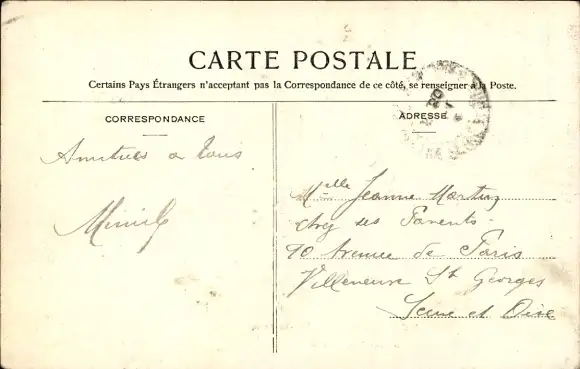 CARTE POSTALE
Certains Pays Étrangers n'acceptant pas la Correspondance de ce côté, se renseigner à la Poste.
CORRESPONDANCE
ADRESSE
Amitiés a tous
Melle Jeanne Martin
chez ses Parents
90 Avenue de Paris
Villeneuve St Georges
Seine et Oise